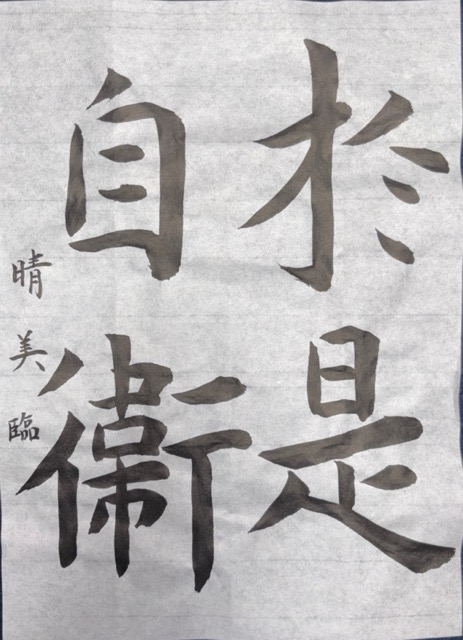 於是
自衛
晴美臨